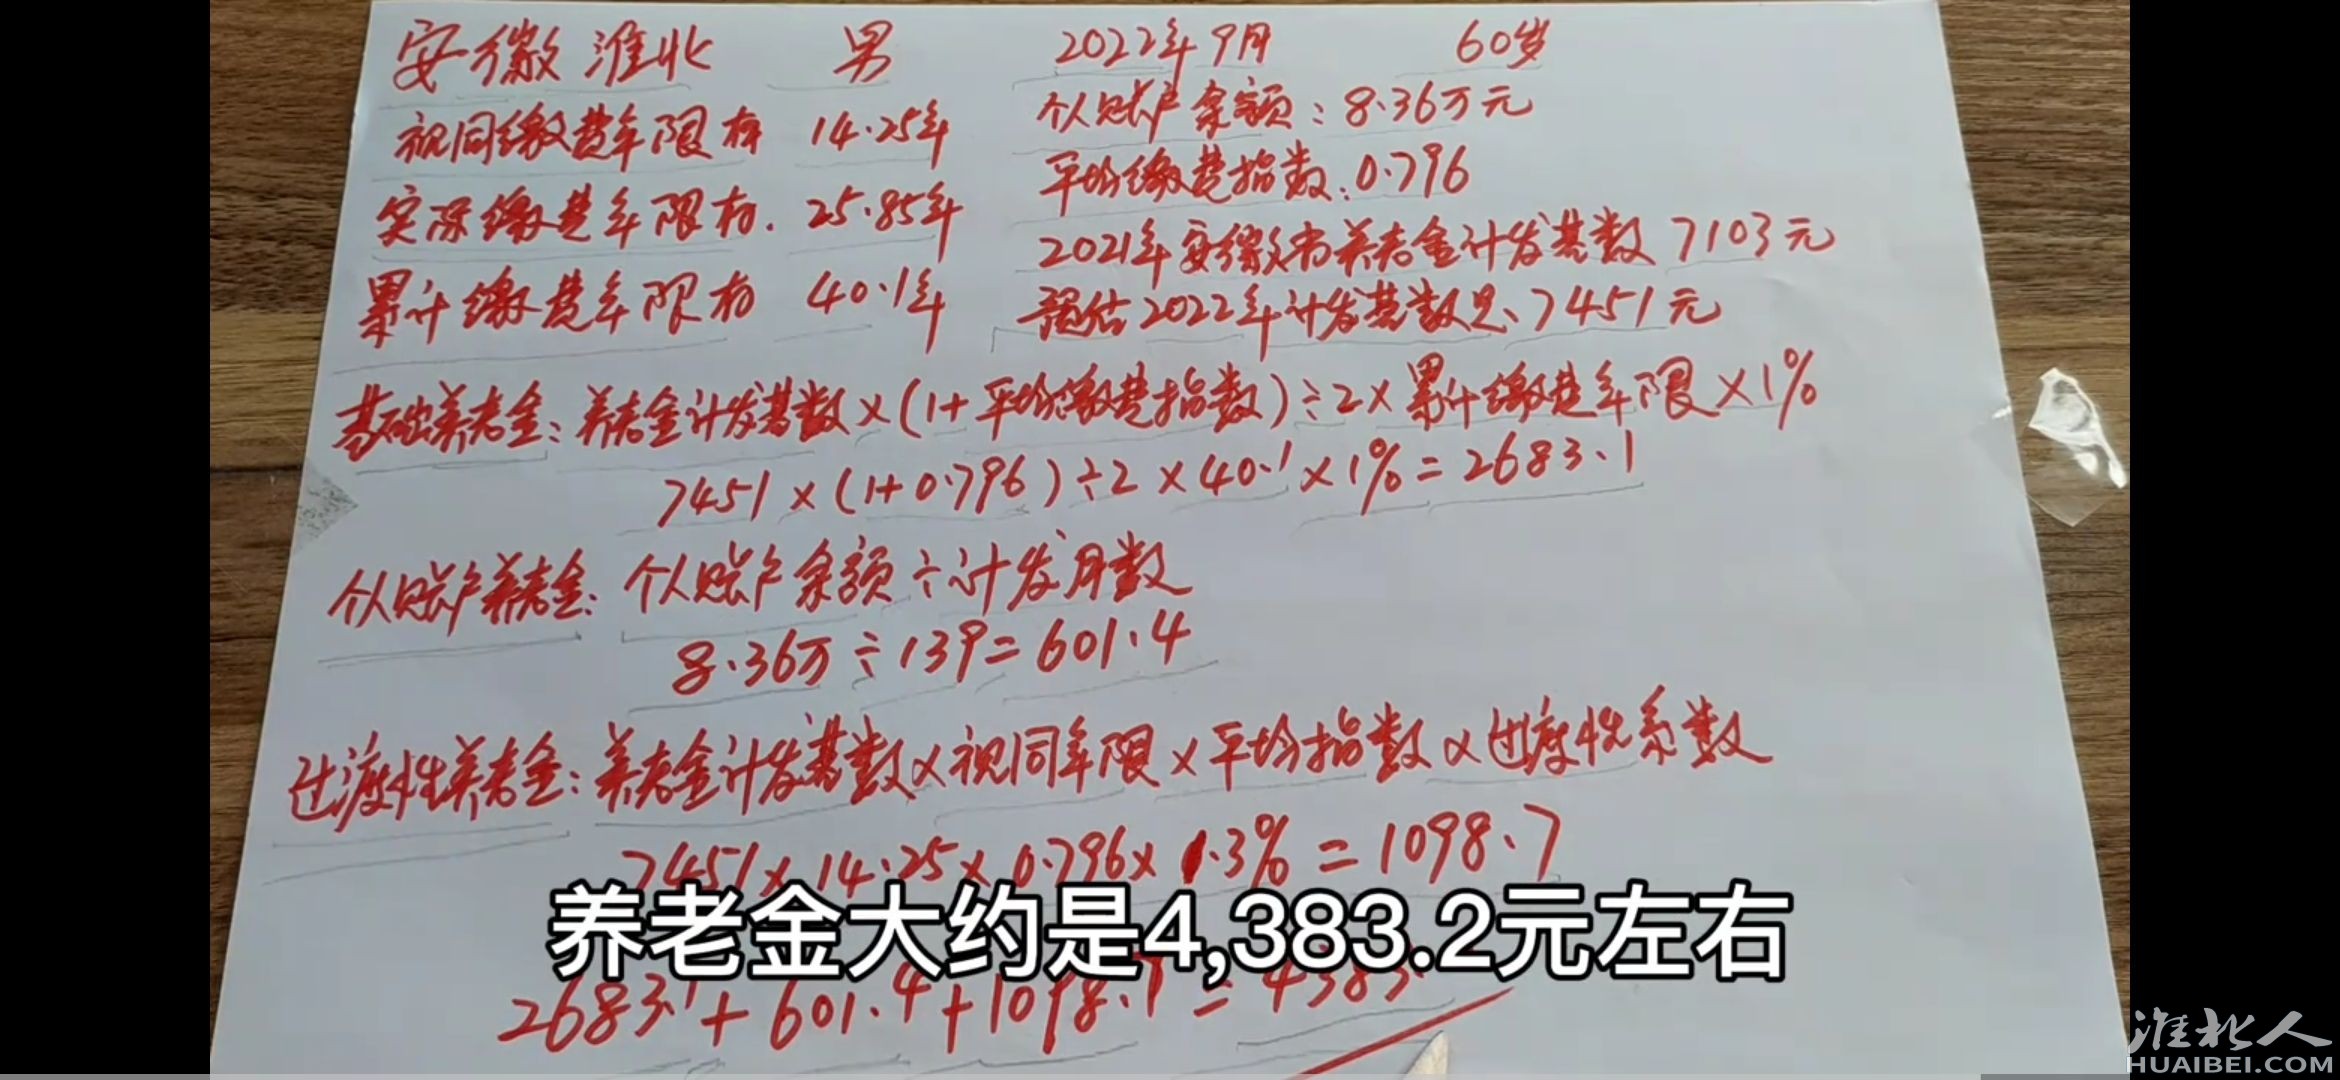 安徽 淮北 男 2022年9月 60岁
视同缴费年限有 14.25年
个人账户余额：8.36万元
实际缴费年限有. 25.85年
平均缴费指数：0.796
累计缴费年限有 40.1年
2021年安徽省养老金计发基数 7103元
预估2022年计发基数是、7451元
基础养老金：养老金计发基数×(1+平均缴费指数)÷2×累计缴费年限×1%
7451×(1+0.796)÷2×40.1×1%=2683.1
个人账户养老金：个人账户余额÷计发月数
8.36万÷139=601.4
过渡性养老金：养老金计发基数×视同年限×平均指数×过渡性系数
7451×14.25×0.796×1.3%=1098.7
养老金大约是4,383.2元左右
2683.1+601.4+1098.7=4383.
淮北人
HUAIBEI.COM